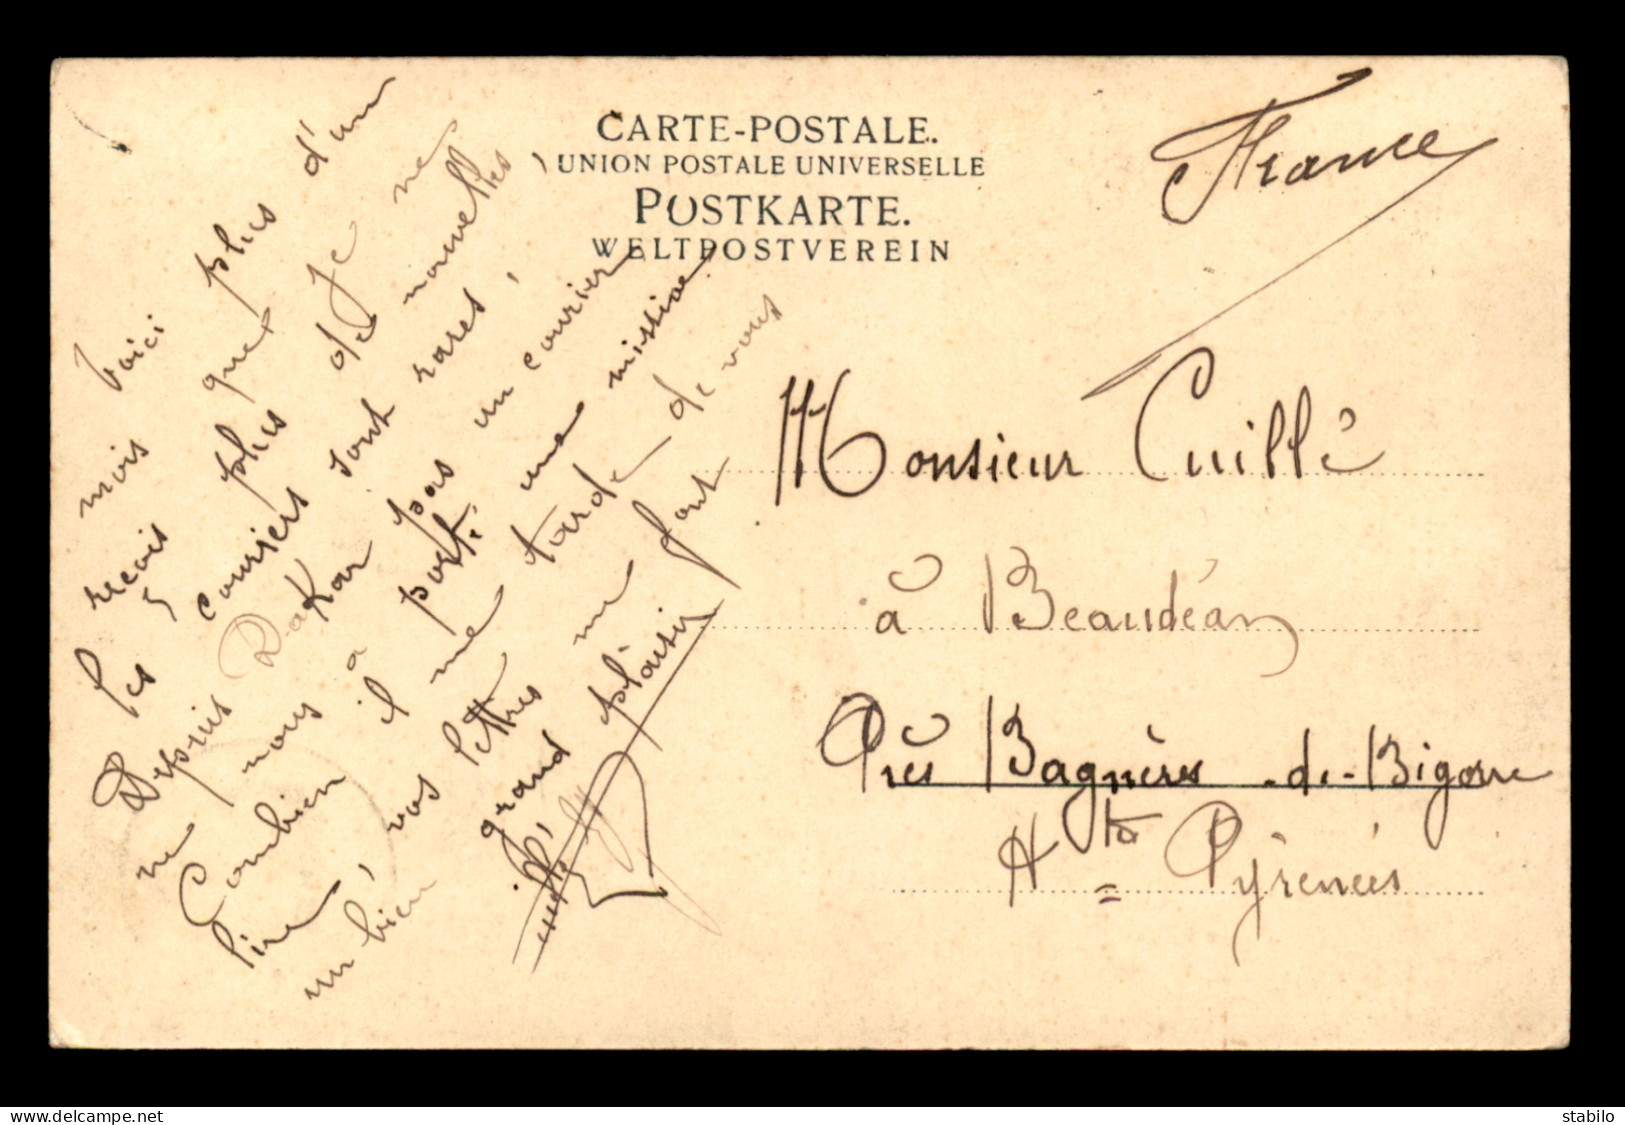 CARTE-POSTALE.
UNION POSTALE UNIVERSELLE
POSTKARTE.
WELTPOSTVEREIN
France
Voici plus d'un
mois que je ne
reçois plus de nouvelles,
les couriers sont rares,
Depuis Dakar pas un courier
ne nous a porté une missive
Combien il me tarde de vous
lire, vos lettres me font
un bien grand plaisir
Monsieur Cuillé
à Beaudéan
Près Bagnères-de-Bigorre
Htes Pyrénées
delcampe.net
stabilo